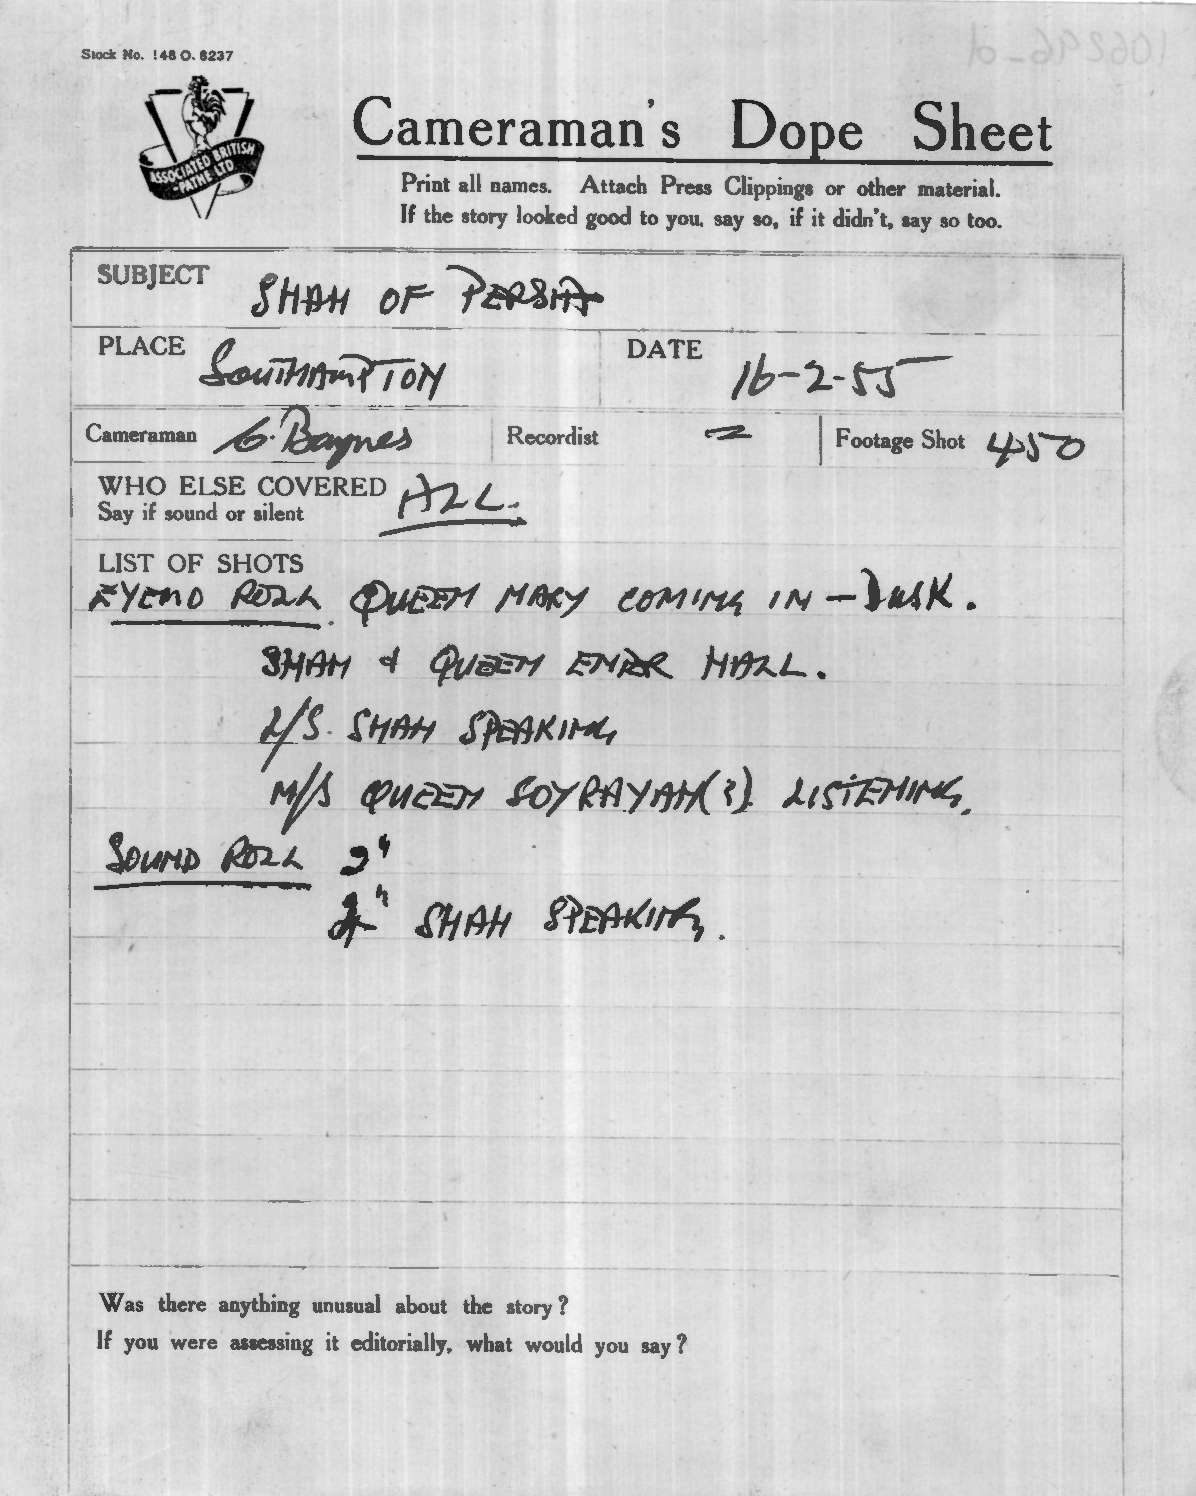 Stock No. 148 O. 6237
ASSOCIATED BRITISH
-PATHE LTD
Cameraman's Dope Sheet
Print all names. Attach Press Clippings or other material.
If the story looked good to you, say so, if it didn't, say so too.
SUBJECT SHAH OF PERSIA
PLACE SOUTHAMPTON DATE 16-2-55
Cameraman G. Baynes Recordist Footage Shot 450
WHO ELSE COVERED ALL.
Say if sound or silent
LIST OF SHOTS
EYEMO ROLL. QUEEN MARY COMING IN - DUSK.
SHAH & QUEEN ENTER HALL.
L/S. SHAH SPEAKING
M/S QUEEN SOYRAYAH(?). LISTENING.
SOUND ROLL 2"
SHAH SPEAKING.
Was there anything unusual about the story?
If you were assessing it editorially, what would you say?